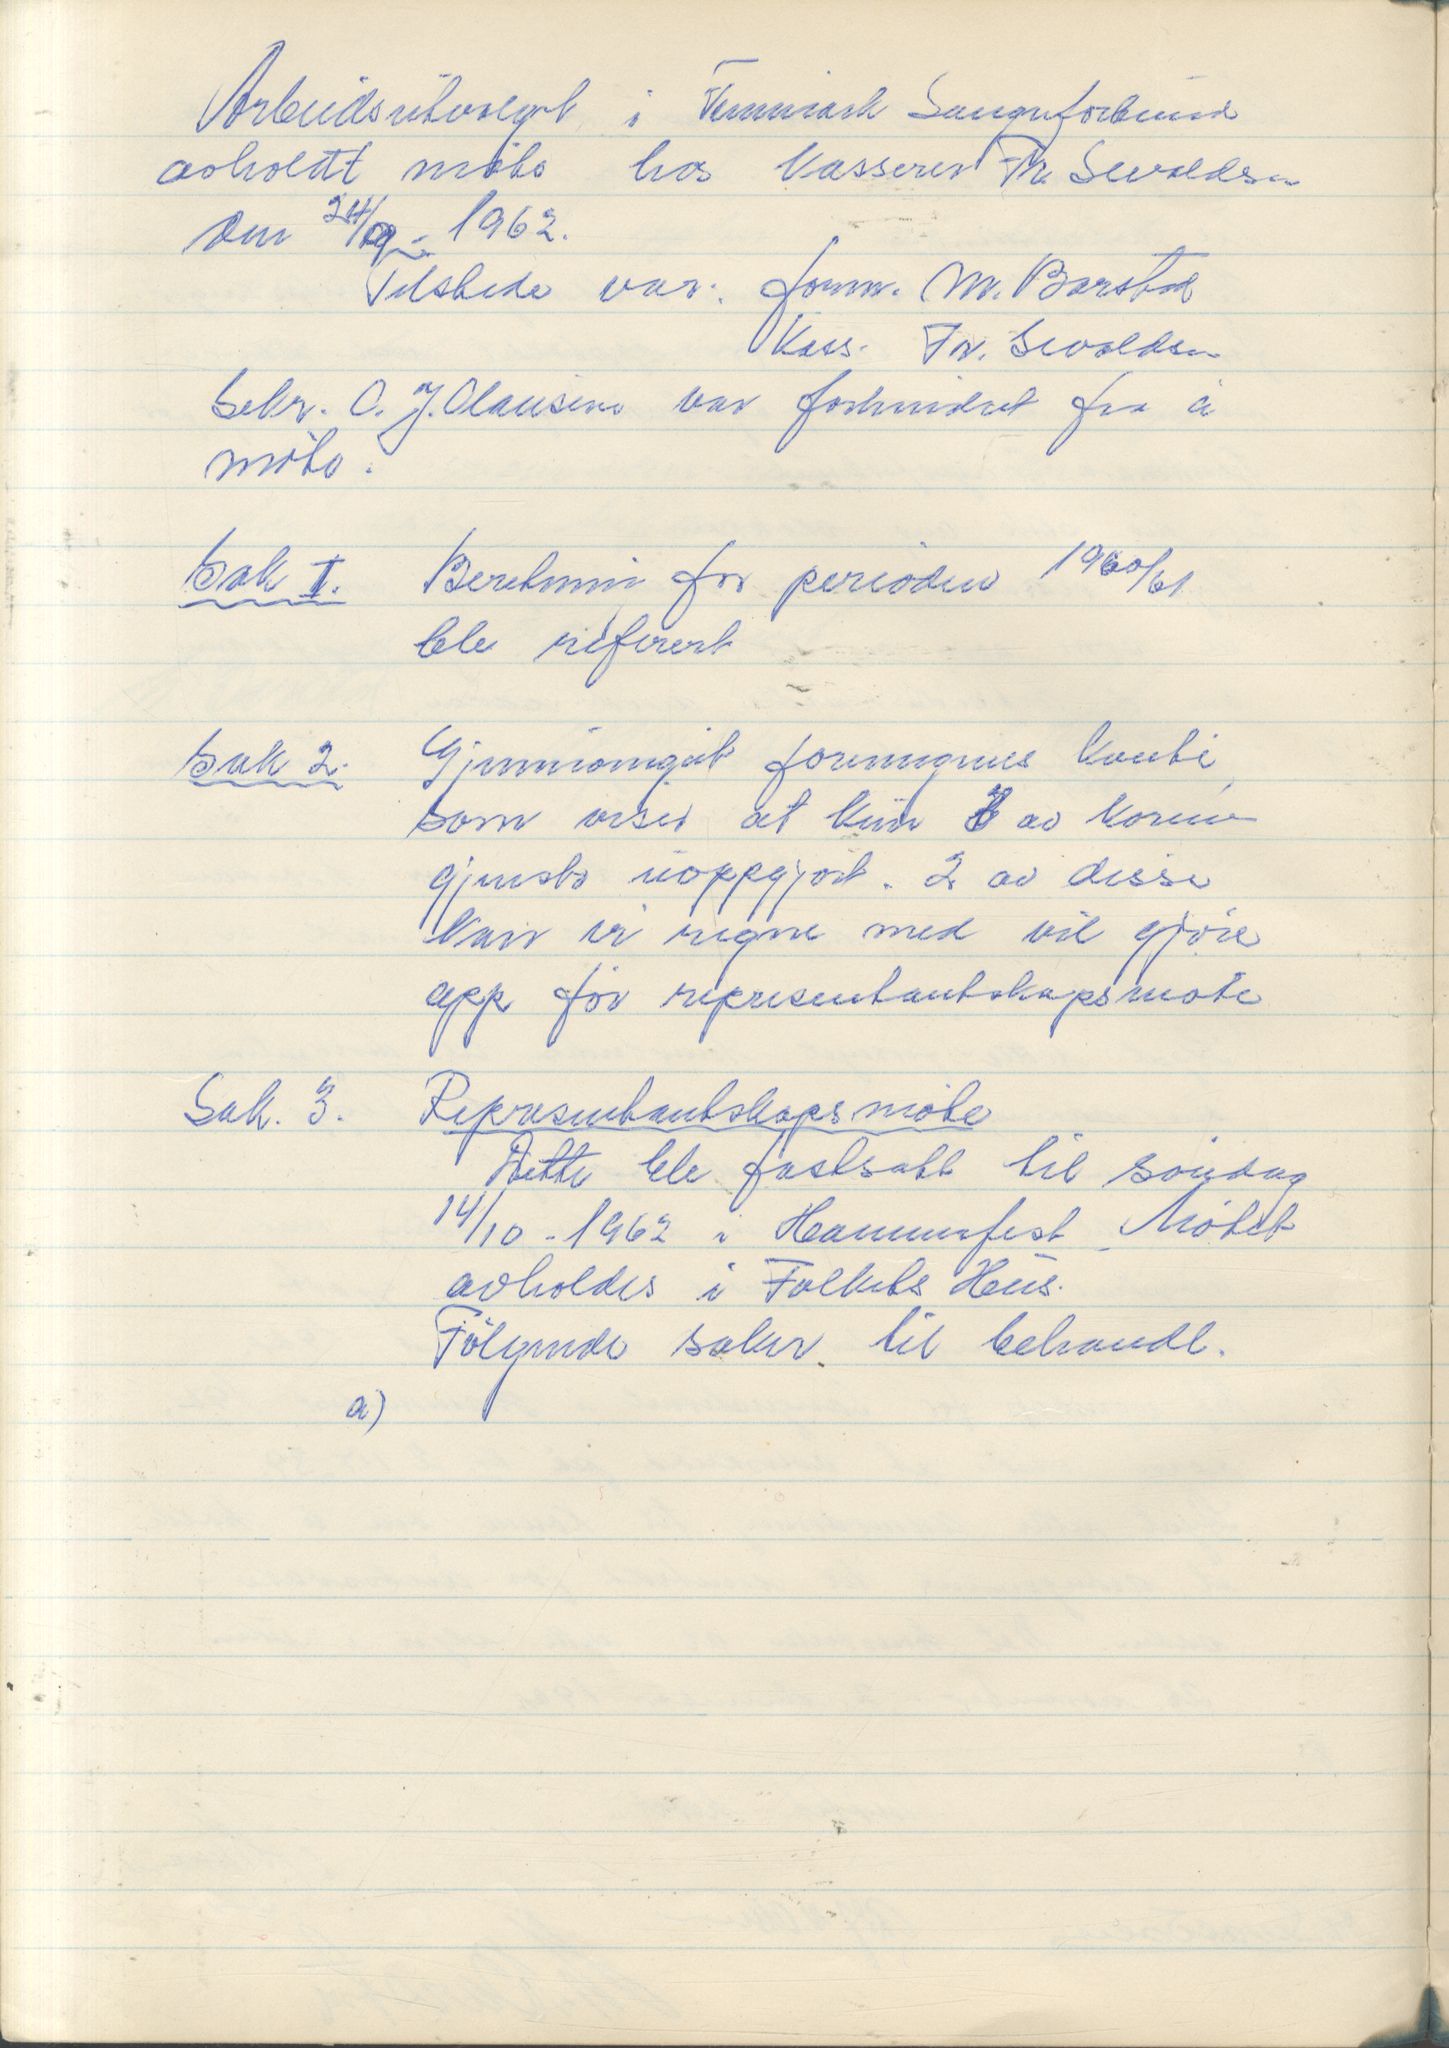 Arbeidsutvalget i Finnmark Sangerforbund
avholdt møte hos kasserer Fr. Sivaldsen
den 24/9 - 1962.
Tilstede var: form. M. Barstad
Kass. Fr. Sivaldsen
Sekr. O. J. Clausen var forhindret fra å
møte.
Sak I. Beretning for perioden 1960/61
ble referert
Sak 2. Gjennomgikk foreningenes konti
som viser at kun av korene
gjenstå uoppgjort. 2 av disse
kan vi regne med vil gjøre
opp før representantskapsmøte
Sak. 3. Representantskapsmøte
Dette ble fastsatt til søndag
14/10 - 1962 i Hammerfest. Møtet
avholdes i Folkets Hus.
Følgende saker til behandl.
a)